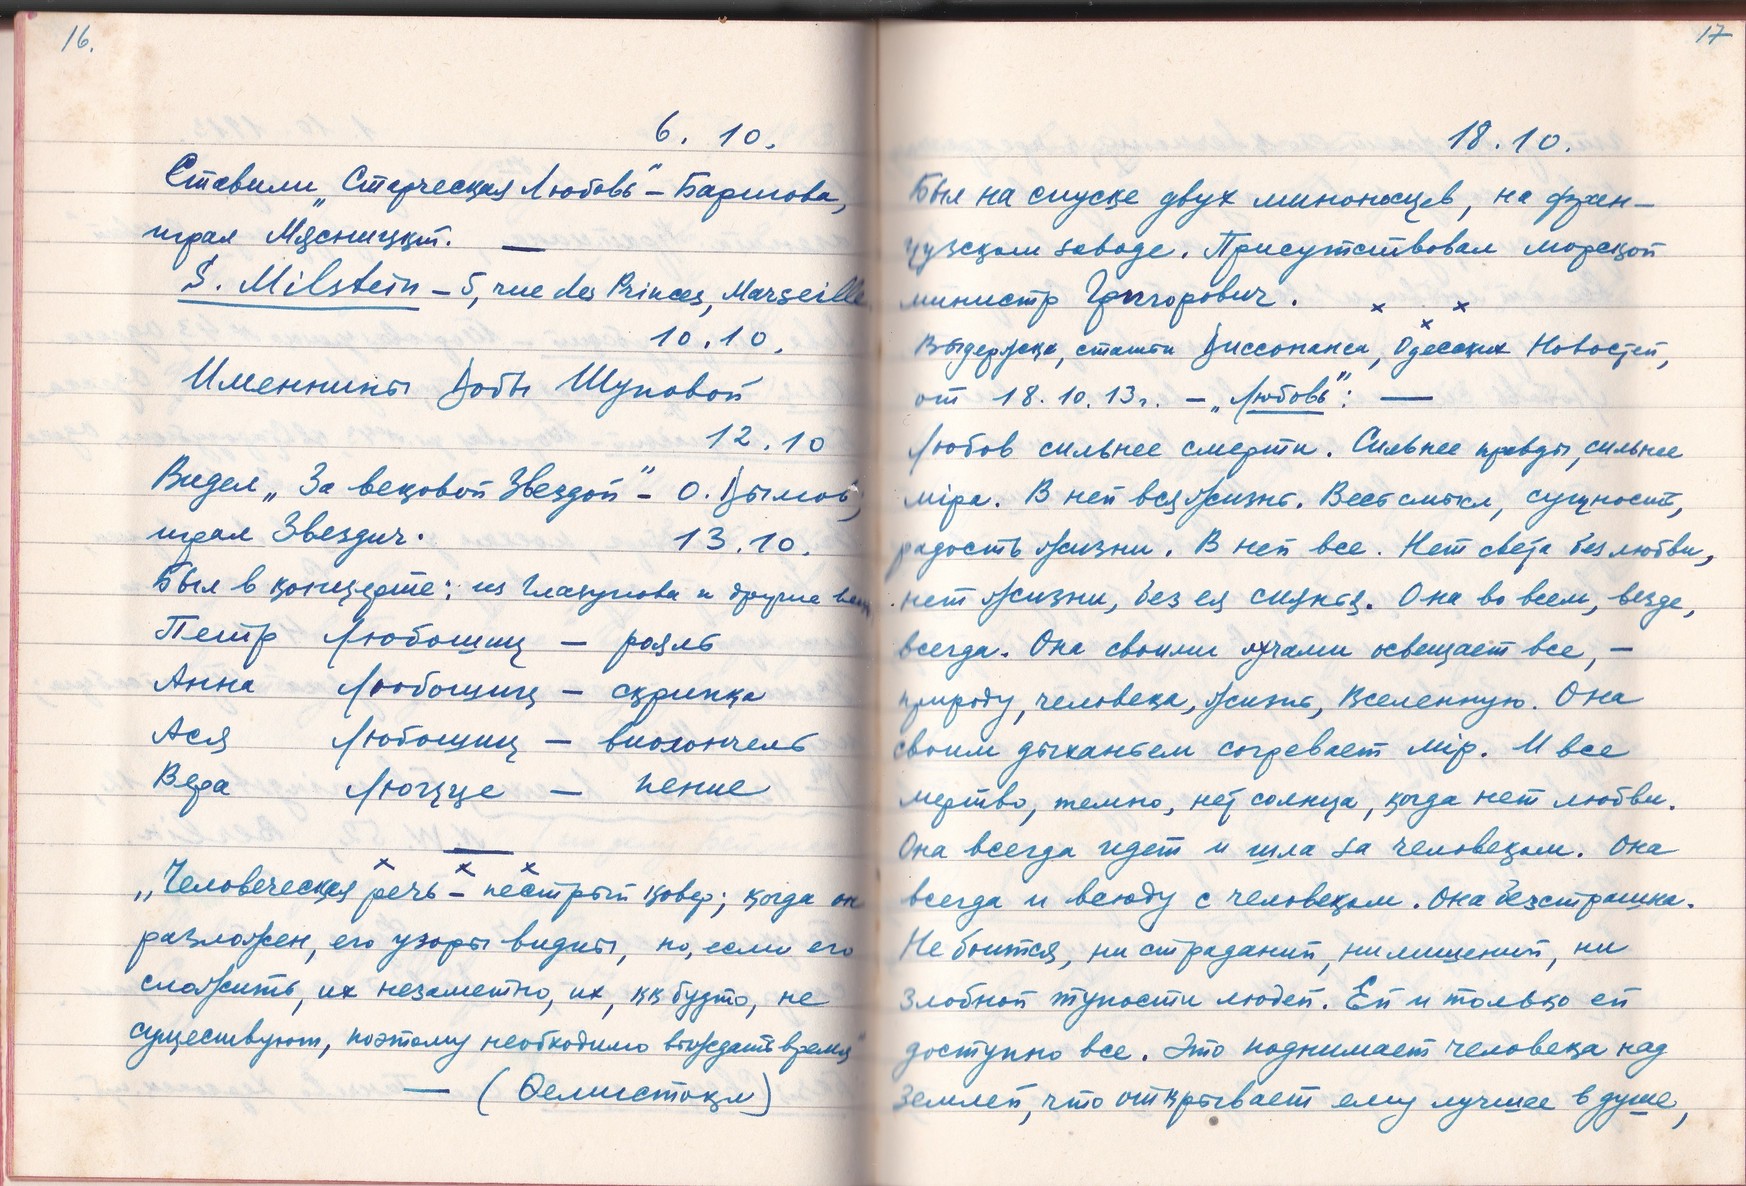 16.
6. 10.
Ставили „Старческая Любовь" – Баринова,
играл Мясницкий. —
S. Milstein – 5, rue des Princes, Marseille
10.10.
Именнины Доды Шуповой
12.10
Видел „За вековой Звездой" – О. Дымов,
играл Звездич.
13.10.
Был в концерте: из Глазунова и другие вещи
Петр Любошиц – рояль
Анна Любошиц – скрипка
Ася Любошиц – виолончель
Вера Люцце – пение
—
„Человеческая речь – пестрый ковер; когда он
разложен, его узоры видны, но, если его
сложить, их незаметно, их, кк будто, не
существуют, поэтому необходимо выждать время"
— (Фемистокл)
17
18.10.
Был на спуске двух миноносцев, на фран–
цузском заводе. Присутствовал морской
министр Григорович. × × ×
Выдержка, статьи Диссонанса, Одесских Новостей,
от 18.10.13г. – „Любовь": —
Любов сильнее смерти. Сильнее правды, сильнее
міра. В ней вся жизнь. Весь смысл, сущность,
радость жизни. В ней все. Нет света без любви,
нет жизни, без ея сиянья. Она во всем, везде,
всегда. Она своими лучами освещает все, –
природу, человека, жизнь, Вселенную. Она
своим дыханьем согревает мір. И все
мертво, темно, нет солнца, когда нет любви.
Она всегда идет и шла за человеком. Она
всегда и всюду с человеком. Она безстрашна.
Не боится, ни страданий, ни лишений, ни
злобной тупости людей. Ей и только ей
доступно все. Это поднимает человека над
Землей, что открывает ему лучшее в душе,